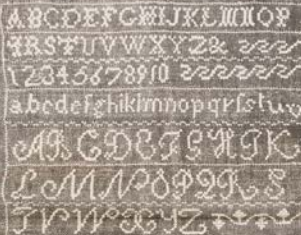 ABCDEFGHIJKLMNOP
QRSTUVWXYZ&
12345678910
abcdefghiklmnopqrſstuv
ABCDEFGHIK
LMNOPQRS
TVWXYZ